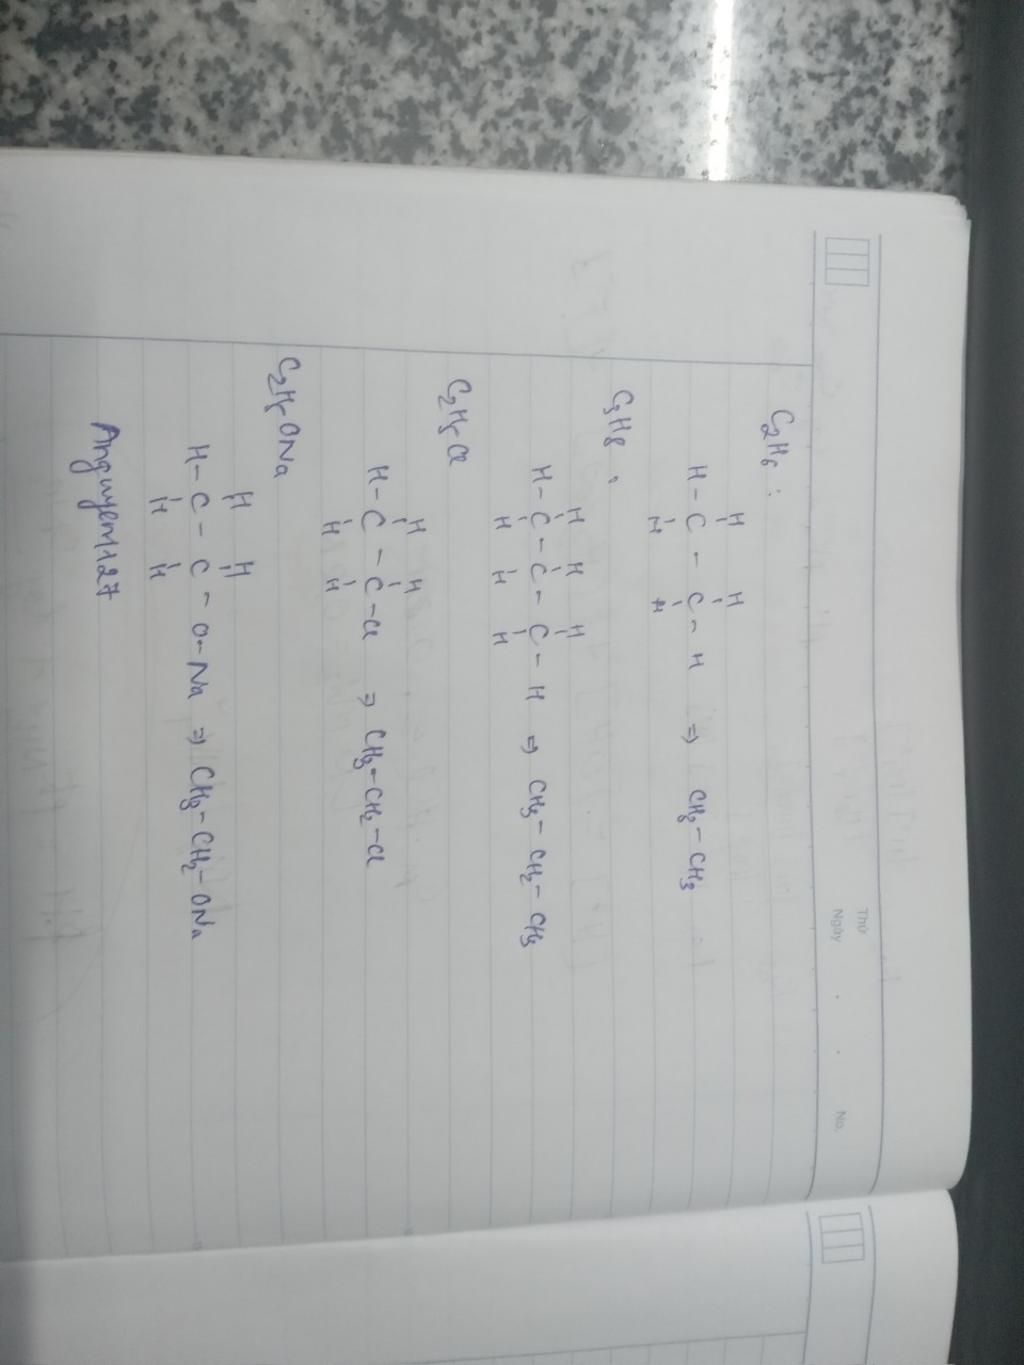 Thứ
Ngày . . No.
C2H6 :
H H
H - C - C - H ⇒ CH3 - CH3
H H
C3H8 .
H H H
H - C - C - C - H ⇒ CH3 - CH2 - CH3
H H H
C2H5Cl
H H
H - C - C - Cl ⇒ CH3 - CH2 - Cl
H H
C2H5ONa
H H
H - C - C - O - Na ⇒ CH3 - CH2 - ONa
H H
Anguyen127